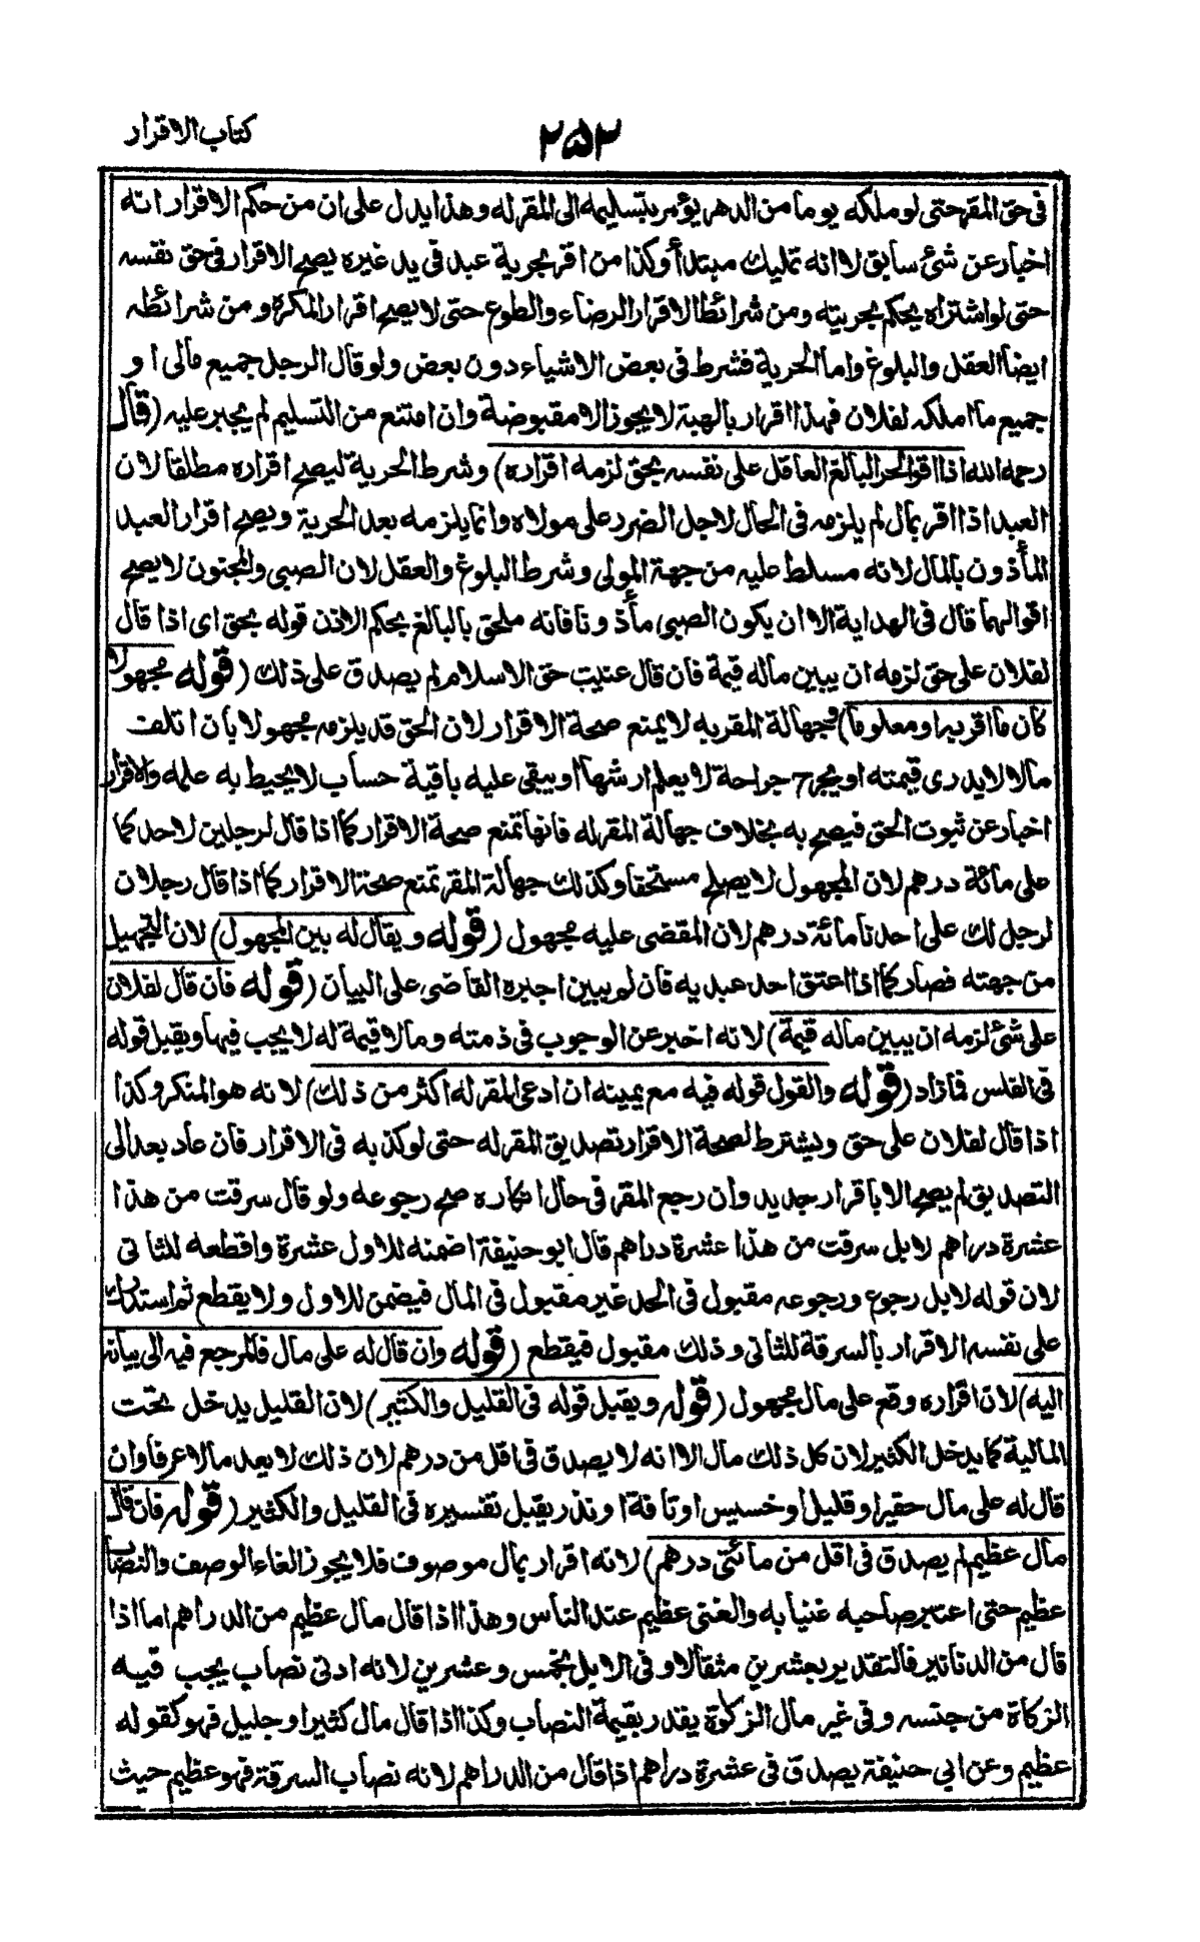 كتاب الاقرار
۲۵۲
فى حق المقر حتى لو ملكه يوما من الدهر يؤمر بتسليمه الى المقر له وهذا يدل على ان من حكم الاقرار انه
اخبار عن شئ سابق لا انه تمليك مبتدأ وكذا من اقر بحرية عبد فى يد غيره يصح الاقرار فى حق نفسه
حتى لو اشتراه يحكم بحريته ومن شرائط الاقرار الرضاء والطوع حتى لا يصح اقرار المكره ومن شرائطه
ايضا العقل والبلوغ واما الحرية فشرط فى بعض الاشياء دون بعض ولو قال الرجل جميع مالى او
جميع ما املكه لفلان فهذا اقرار بالهبة لا يجوز الا مقبوضة وان امتنع من التسليم لم يجبر عليه (قال
رحمه الله اذا اقر الحر البالغ العاقل على نفسه بحق لزمه اقراره) وشرط الحرية ليصح اقراره مطلقا لان
العبد اذا اقر بمال لم يلزمه فى الحال لاجل الضرر على مولاه وانما يلزمه بعد الحرية ويصح اقرار العبد
المأذون بالمال لانه مسلط عليه من جهة المولى وشرط البلوغ والعقل لان الصبى والمجنون لا يصح
اقوالهما قال فى الهداية الا ان يكون الصبى مأذونا فانه ملحق بالبالغ بحكم الاذن قوله بحق اى اذا قال
لفلان على حق لزمه ان يبين ماله قيمة فان قال عنيت حق الاسلام لم يصدق على ذلك (قوله مجهولا
كان ما اقر به او معلوما) وجهالة المقر به لا يمنع صحة الاقرار لان الحق قد يلزمه مجهولا بان اتلف
مالا لا يدرى قيمته او يجرح جراحة لا يعلم ارشها او يبقى عليه باقية حساب لا يحيط به علمه والاقرار
اخبار عن ثبوت الحق فيصح به بخلاف جهالة المقر له فانها تمنع صحة الاقرار كما اذا قال لرجلين لاحدكما
على مائة درهم لان المجهول لا يصلح مستحقا وكذلك جهالة المقر تمنع صحة الاقرار كما اذا قال رجلان
لرجل لك على احدنا مائة درهم لان المقضى عليه مجهول (قوله ويقال له بين المجهول) لان التجهيل
من جهته فصار كما اذا اعتق احد عبديه فان لم يبين اجبره القاضى على البيان (قوله فان قال لفلان
على شئ لزمه ان يبين ماله قيمة) لانه اخبر عن الوجوب فى ذمته ومالا قيمة له لا يجب فيها ويقبل قوله
فى الفلس فما زاد (قوله والقول قوله فيه مع يمينه ان ادعى المقر له اكثر من ذلك) لانه هو المنكر وكذا
اذا قال لفلان على حق ويشترط لصحة الاقرار تصديق المقر له حتى لو كذبه فى الاقرار فان عاد بعد الى
التصديق لم يصح الا باقرار جديد وان رجع المقر فى حال انكاره صح رجوعه ولو قال سرقت من هذا
عشرة دراهم لا بل سرقت من هذا عشرة دراهم قال ابو حنيفة اضمنه للاول عشرة واقطعه للثانى
لان قوله لا بل رجوع ورجوعه مقبول فى الحد غير مقبول فى المال فيضمن للاول ولا يقطع ثم استدرك
على نفسه الاقرار بالسرقة للثانى وذلك مقبول فيقطع (قوله وان قال له على مال فالمرجع فيه الى بيانه
اليه) لان اقراره وقع على مال مجهول (قوله ويقبل قوله فى القليل والكثير) لان القليل يدخل تحت
المالية كما يدخل الكثير لان كل ذلك مال الا انه لا يصدق فى اقل من درهم لان ذلك لا يعد مالا عرفا وان
قال له على مال حقير او قليل او خسيس او تافه او نذر يقبل تفسيره فى القليل والكثير (قوله فان قال
مال عظيم لم يصدق فى اقل من مائتى درهم) لانه اقرار بمال موصوف فلا يجوز الغاء الوصف والنصاب
عظيم حتى اعتبر صاحبه غنيا به والغنى عظيم عند الناس وهذا اذا قال مال عظيم من الدراهم اما اذا
قال من الدنانير فالتقدير بعشرين مثقالا وفى الابل بخمس وعشرين لانه ادنى نصاب يجب فيه
الزكاة من جنسه وفى غير مال الزكوة يقدر بقيمة النصاب وكذا اذا قال مال كثير او جليل فهو كقوله
عظيم وعن ابى حنيفة يصدق فى عشرة دراهم اذا قال من الدراهم لانه نصاب السرقة فهو عظيم حيث